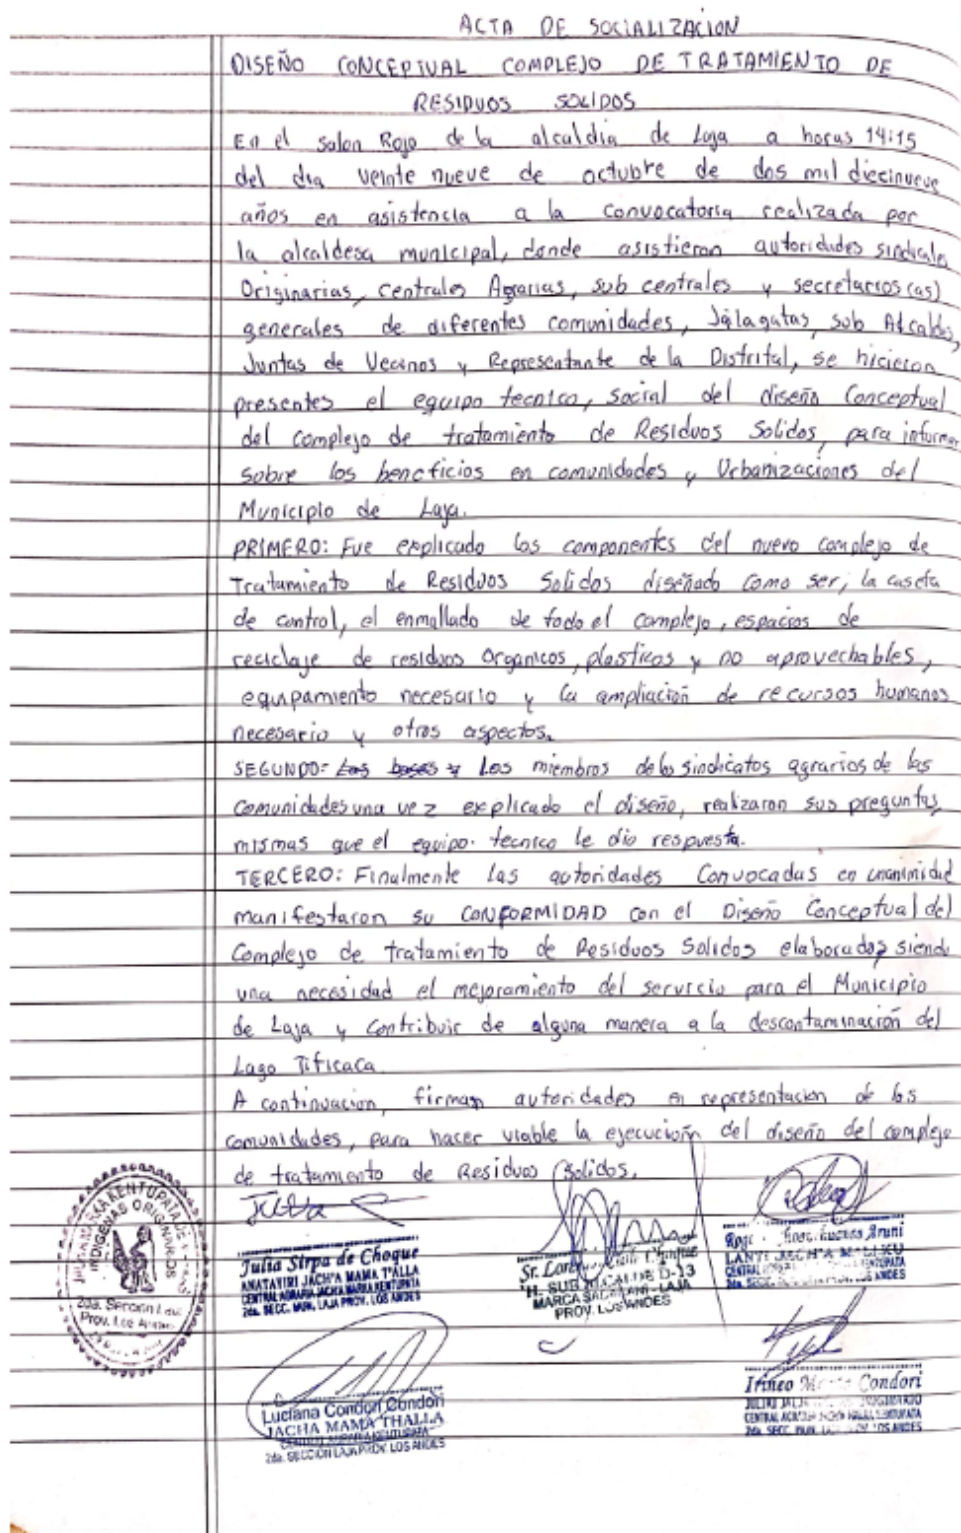 ACTA DE SOCIALIZACION
DISEÑO CONCEPTUAL COMPLEJO DE TRATAMIENTO DE
RESIDUOS SOLIDOS
En el salon Rojo de la alcaldia de Laja a horas 14:15
del dia veinte nueve de octubre de dos mil diecinueve
años en asistencia a la convocatoria realizada por
la alcaldesa municipal, donde asistieron autoridades sindicales
Originarias, centrales Agrarias, sub centrales y secretarios(as)
generales de diferentes comunidades, Jalagatas, sub Alcaldes,
Juntas de Vecinos y Representante de la Distrital, se hicieron
presentes el equipo tecnico, Social del diseño Conceptual
del complejo de tratamiento de Residuos Solidos, para informar
sobre los beneficios en comunidades y Urbanizaciones del
Municipio de Laja.
PRIMERO: Fue explicado los componentes del nuevo complejo de
Tratamiento de Residuos Solidos diseñado como ser; la caseta
de control, el enmallado de todo el complejo, espacios de
reciclaje de residuos Organicos, plasticos y no aprovechables,
equipamiento necesario y la ampliación de recursos humanos
necesario y otros aspectos.
SEGUNDO: Las bases y Los miembros de los sindicatos agrarios de las
Comunidades una vez explicado el diseño, realizaron sus preguntas
mismas que el equipo. tecnico le dio respuesta.
TERCERO: Finalmente las autoridades Convocadas en unanimidad
manifestaron su CONFORMIDAD con el Diseño Conceptual del
Complejo de tratamiento de Residuos Solidos elaborados siendo
una necesidad el mejoramiento del servicio para el Municipio
de Laja y contribuir de alguna manera a la descontaminación del
Lago Titicaca
A continuacion, firman autoridades en representacion de las
comunidades, para hacer viable la ejecución del diseño del complejo
de tratamiento de Residuos Solidos.
Julia
Julia Sirpa de Choque
ANATAYIRI JACH'A MAMA T'ALLA
CENTRAL AGRARIA JACHA MARKA KENTUPATA
2da. SECC. MUN. LAJA PROV. LOS ANDES
KENTUPATA
INDIGENAS ORIGINARIOS
2da. Sección Laja
Prov. Los Andes
H. SUB ALCALDE D-13
MARCA - LAJA
PROV. LOS ANDES
Luciana Condori Condori
JACHA MAMA THALLA
2da. SECCIÓN LAJA PROV. LOS ANDES
Irineo Condori